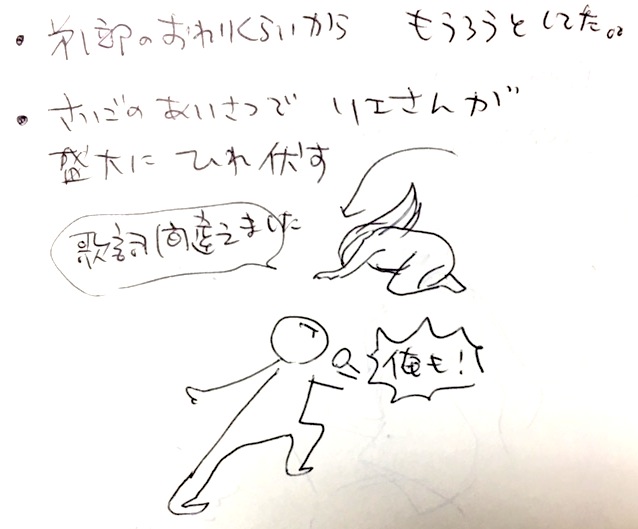 • 第1部のおわりくらいから もうろうとしてた。
• さいごのあいさつで リエさんが
盛大に ひれ伏す
歌詞間違えました
俺も!